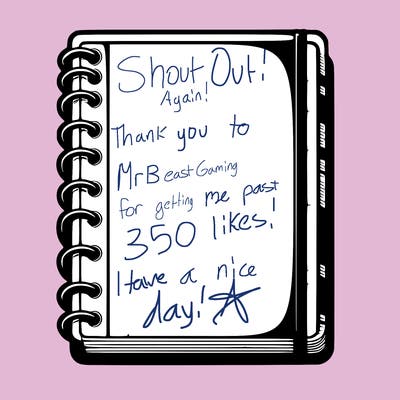 Shout Out!
Again!
Thank you to
MrBeastGaming
for getting me past
350 likes!
Have a nice
day!